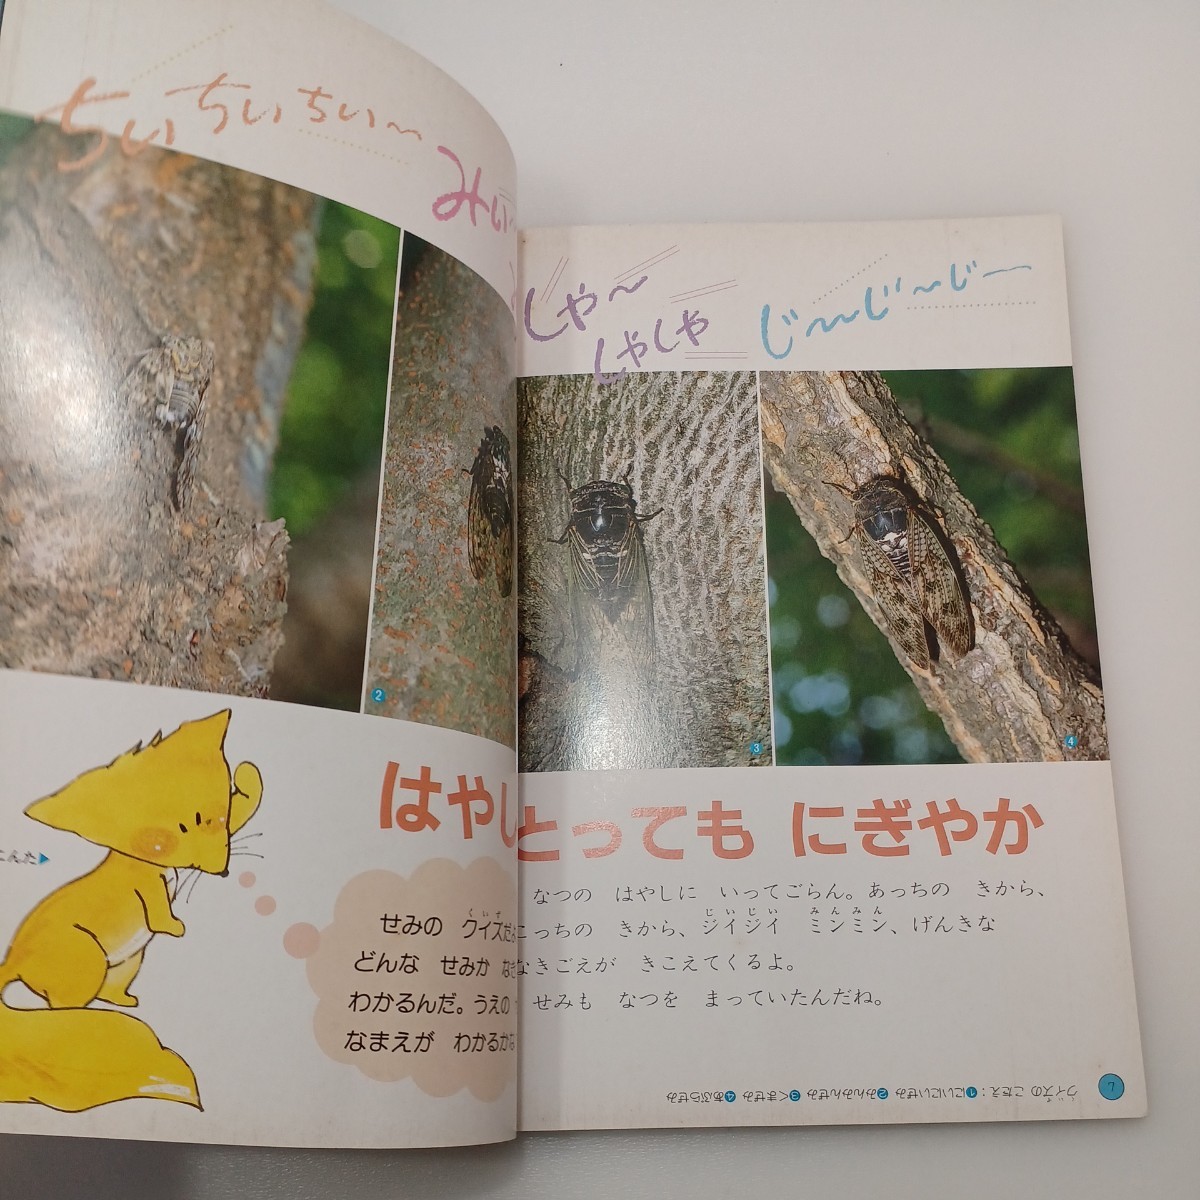 ちぃ ちぃ ちぃ〜
みぃ〜
しゃ〜
しゃしゃ
じ〜〜じ〜じー
2
3
4
はやし
とっても にぎやか
こんた▶
くいず
せみの クイズだよ
どんな せみか なき
わかるんだ。うえの
なまえが わかるかな
なつの はやしに いってごらん。あっちの きから、
じいじい みんみん
こっちの きから、ジイジイ ミンミン、げんきな
なきごえが きこえてくるよ。
せみも なつを まっていたんだね。
くいず
クイズの こたえ：1にいにいぜみ 2みんみんぜみ 3くまぜみ 4あぶらぜみ
7